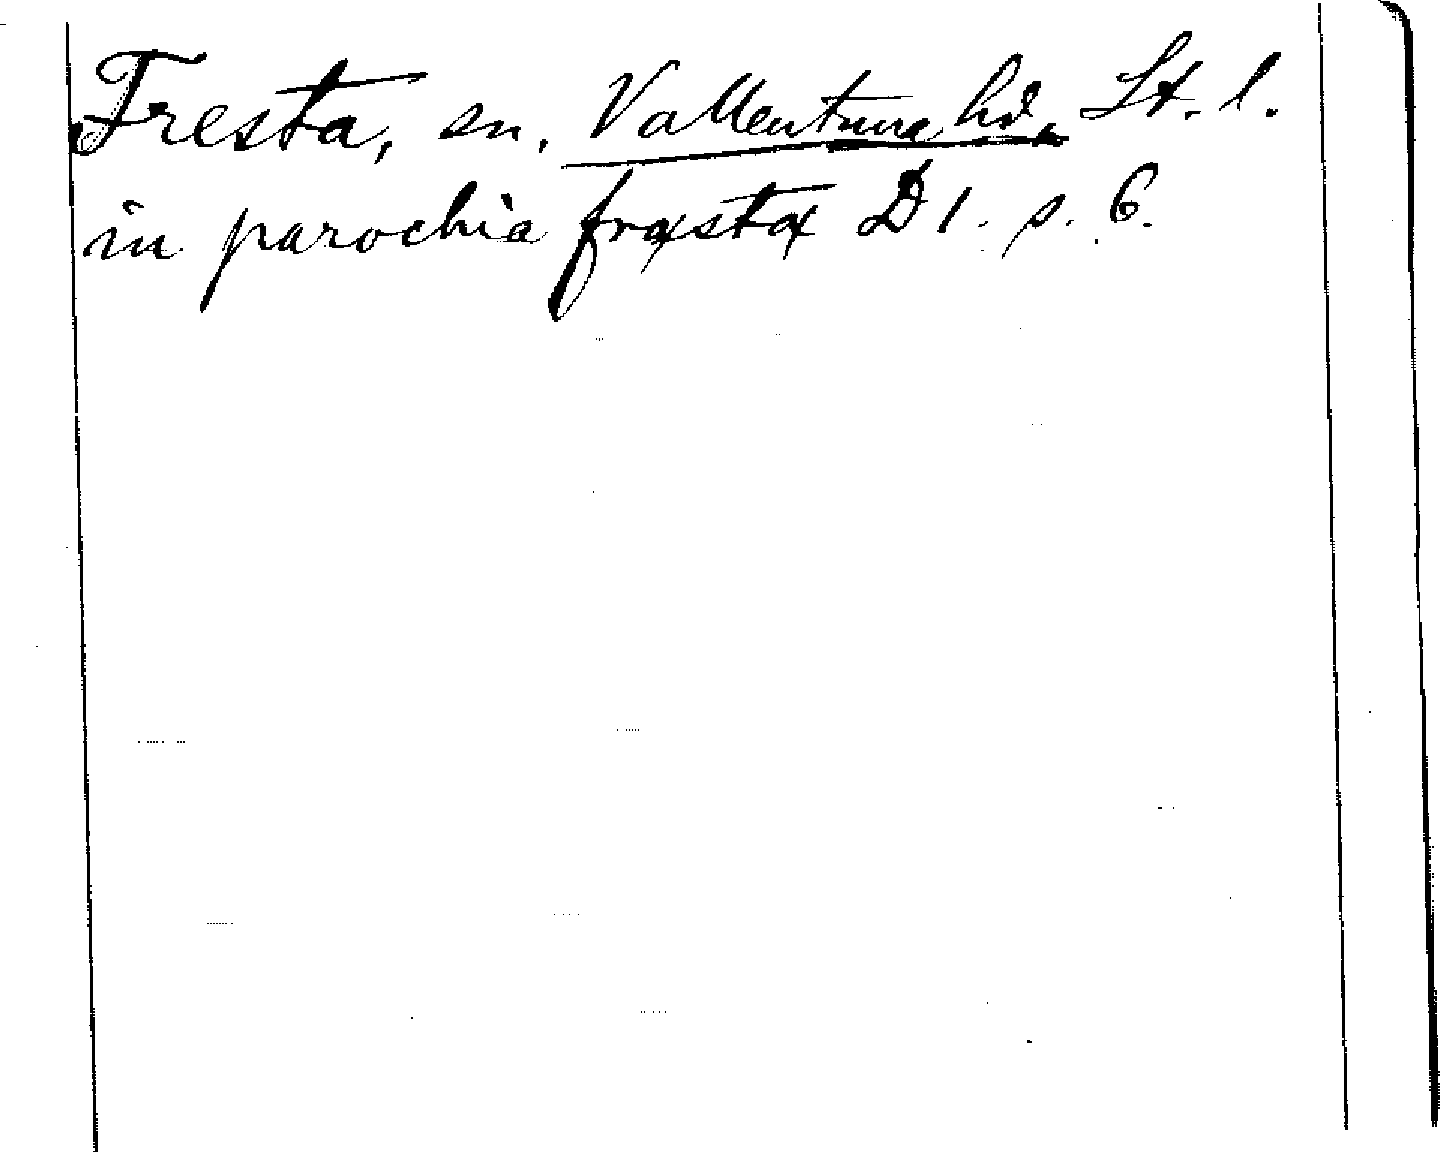 Fresta, sn, Vallentuna hd, St. l.
in parochia fræstæ D 1. s. 6.